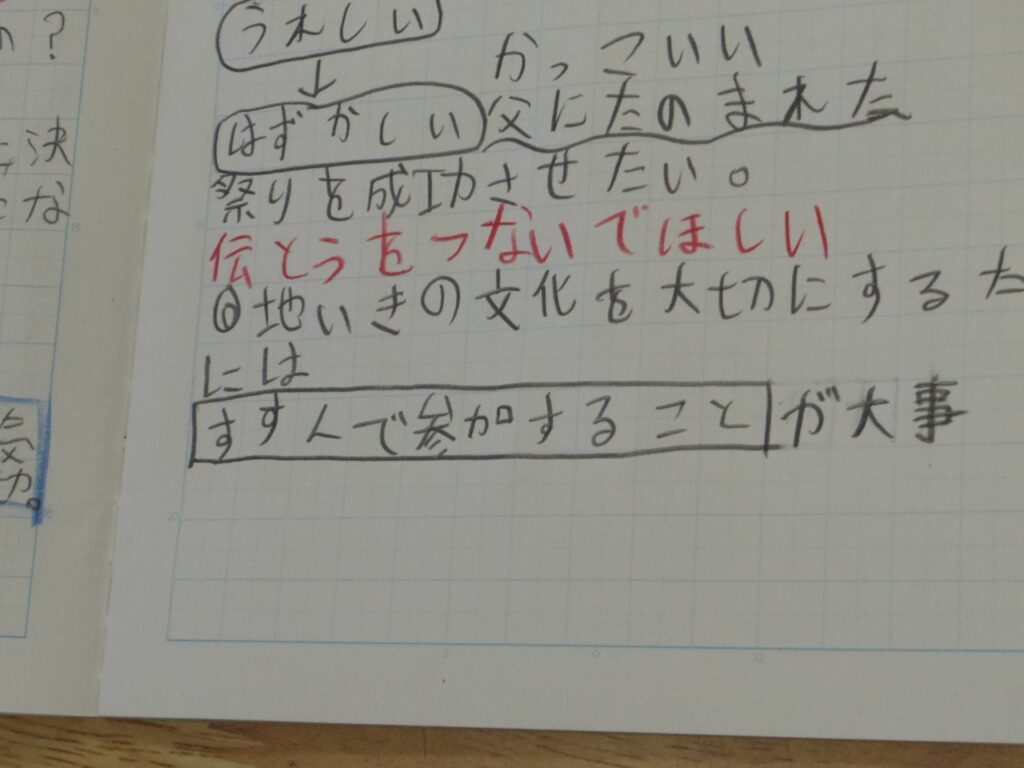 の?
決
な
うれしい
↓
かっこいい
はずかしい 父にたのまれた
祭りを成功させたい。
伝とうをつないでほしい
◎地いきの文化を大切にするた
には
すすんで参加することが大事